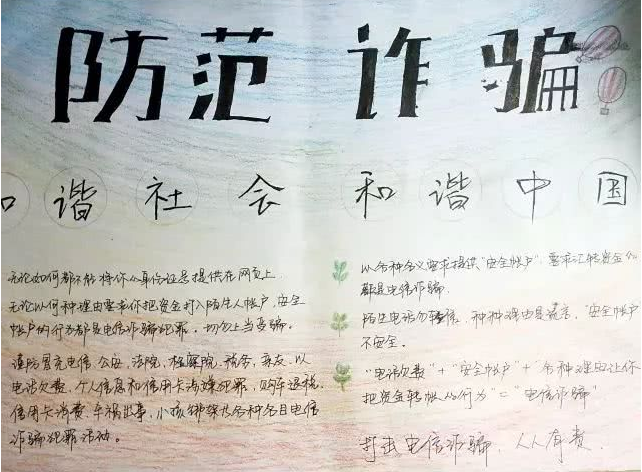 防范诈骗
和谐社会 和谐中国
无论如何都不能将你的身份证号提供在网页上.
无论以何种理由要求你把资金打入陌生人帐户、安全
帐户的行为都是电信诈骗犯罪。切勿上当受骗。
谨防冒充电信、公安、法院、检察院、税务、亲友、以
电话欠费、个人信息和信用卡涉嫌犯罪,购车退税、
信用卡消费、车祸出事、小孩绑架及各种名目电信
诈骗犯罪活动。
以各种名义要求提供"安全帐户",要求汇转资金
都是电信诈骗.
陌生电话勿轻信,种种理由是谎言,"安全帐户"
不安全。
"电话欠费"+"安全帐户"+"各种理由让你
把资金转帐的行为"="电信诈骗"
打击电信诈骗,人人有责.